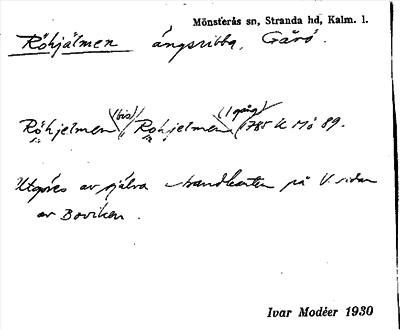 Mönsterås sn, Stranda hd, Kalm. l.
Röhjälmen ängsribba, Gårö.
(bis) (1 gång)
Röhjelmen, Rohjelmen 1785 K Mö 89.
Utgöres av själva strandkanten på V. sidan
av Boviken.
Ivar Modéer 1930